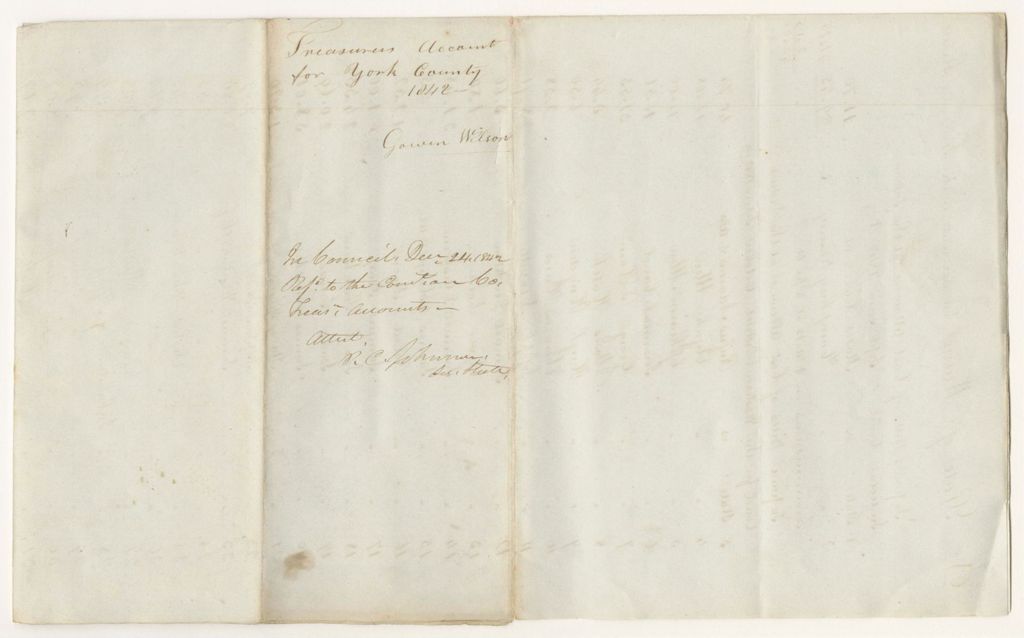 Treasurers Account
for York County
1842
Gowen Wilson
In Council, Decr 24, 1842
Refd. to the Com. on Co.
Treasr. accounts
Attest,
P. C. Johnson,
Sec. State,